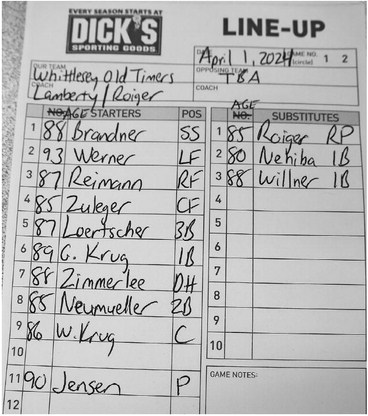 EVERY SEASON STARTS AT
DICK'S
SPORTING GOODS
LINE-UP
DATE April 1, 2024 GAME NO. (circle) 1 2
OUR TEAM Whittlesey Old Timers
OPPOSING TEAM TBA
COACH Lamberty/Roiger
COACH
NO. AGE STARTERS POS
1 88 Brandner SS
2 93 Werner LF
3 87 Reimann RF
4 85 Zuleger CF
5 87 Loertscher 3B
6 89 G. Krug 1B
7 88 Zimmerlee DH
8 85 Neumueller 2B
9 86 W. Krug C
10
11 90 Jensen P
12
AGE
NO. SUBSTITUTES
1 85 Roiger RP
2 80 Nehiba 1B
3 88 Willner 1B
4
5
6
7
8
9
10
GAME NOTES: